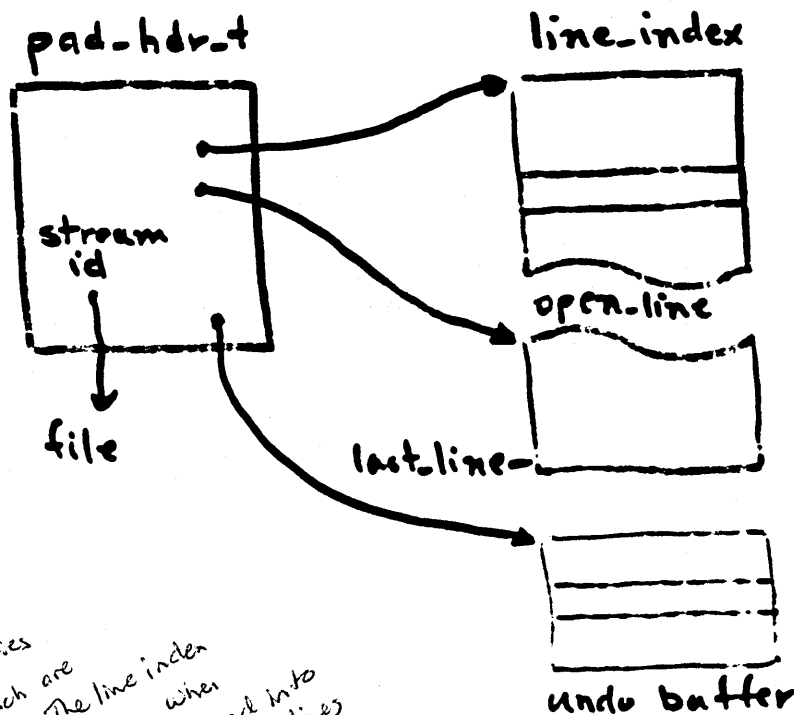 pad_hdr_t
line_index
stream
id
open_line
file
last_line
undo buffer
ch are
The line index
when
d into